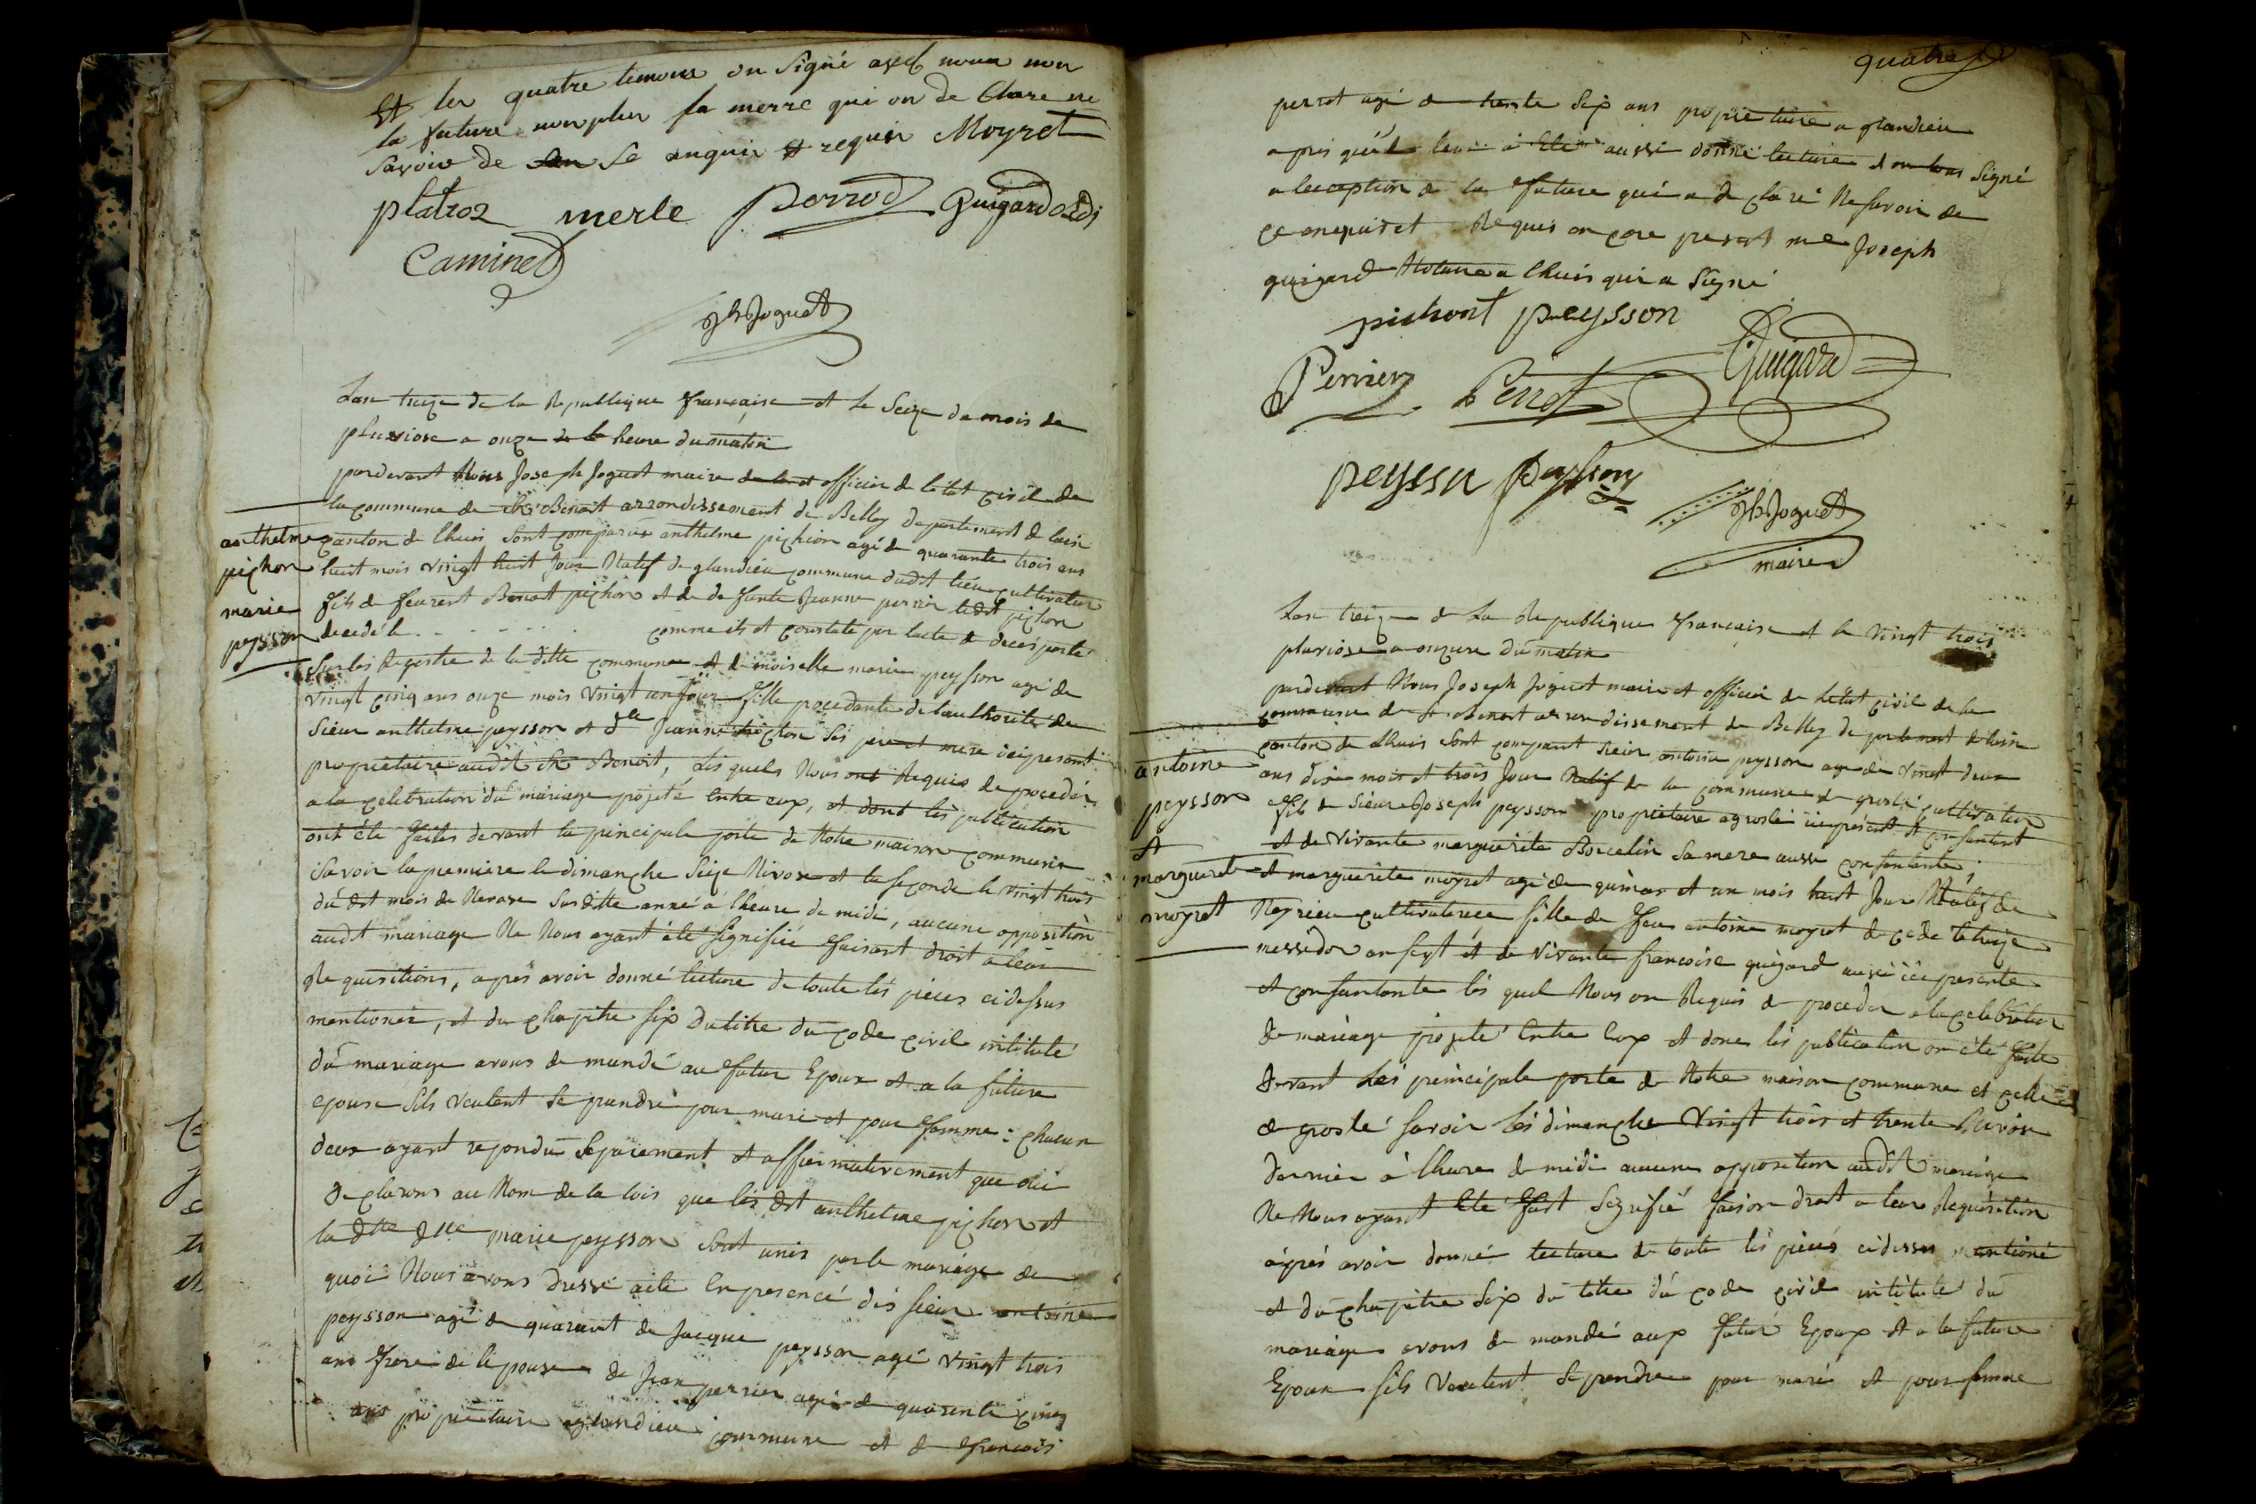 Et les quatre temoins on Signé avec nous non
la future non plus sa merre qui on de Clare ne
Savoir de Se enquis et requis Moyret
platroz merle Perrod Guigard
Caminet
Jh Joguet
Lan treize de la Republique française et le Seize du mois de
pluviose a onze heure du matin
pardevant Nous Joseph Joguet maire et officier de letat civil de
la commune de St Benoit arrondissement de Belley departement de lain
canton de lhuis Sont comparus anthelme pichon agé de quarante trois ans
huit mois vingt huit jour Natif de glandieu commune dudit lieu cultivateur
fils de feu Benoit pichon et de de funte Jeanne perrier ledit pichon
decedé le . . . . . . comme ils et constaté par lacte de deces porté
Sur les Registre de la ditte commune et demoiselle marie peysson agé de
vingt cinq ans onze mois vingt un jour fille procedante de lauthorité de
Sieur anthelme peysson et dlle Jeanne Ses pere et mere ici present
proprietaire audit St Benoit, Les quels Nous ont Requis de proceder
a la celebration du mariage projeté entre eux, et dont les publication
ont été faites devant la principale porte de Notre maison commune
Savoir la premiere le dimanche Seize Nivose et la seconde le vingt trois
du dit mois de Nivose Susditte anné a lheure de midi, aucune opposition
audit mariage Ne Nous ayant été signifié faisant droit a leur
Requisitions, apres avoir donné lecture de toute les pieces cidessus
mentionés, et du chapitre six du titre du code civil intitulé
du mariage avons de mandé au futur Epoux et a la future
epouse Sils veulent Se prendre pour mari et pour femme : chacun
deux ayant repondu Separement et affirmativement que oui
De clarons au Nom de la lois que les dit anthelme pichon et
la dtte dlle marie peysson Sont unis par le mariage de
quoi Nous avons Dressé acte En presence des sieur antoine
peysson agé de quarant de Jacque peysson agé vingt trois
ans frere de lepouse de Jean perrier agé de quarente cinq
ans proprietaire a glandieu commune et de francois
anthelme
pichon
marie
peysson
quatre
perrot agé de trente Six ans proprietaire a glandieu
a pres quil leur a Eté aussi donné lecture et on tous Signé
a lexception de la future qui a de claré Ne savoir de
ce enquis et Requis en core present me Joseph
guigard Notaire a lhuis qui a Signé
pichont peysson
Perrier Perrot Guigard
peysson peysson
Jh Joguet
maire
Lan treize de la Republique francaise et le vingt trois
pluviose a onzure du matin
pardevant Nous Joseph Joguet maire et officier de letat civil de la
commune de St Benoit arrondissement de Belley departement de lain
canton de Lhuis Sont comparut Sieur antoine peysson age de vingt deux
ans dix mois et trois Jour Natif de la commune de groslé cultivateur
fils de Sieur Joseph peysson proprietaire a groslé ici présent et consentent
et de vivante marguerite Borcelin Sa mere ausse consentante,
et marguerite moyret agé de quinze et un mois huit Jour Natif de
Neyrieu cultivaterice fille de feu antoine moyret de cede le treize
messidor an sept et de vivante francoise guigard aussi ici presente
et consentante les quel Nous on Requis de proceder a la celebration
de mariage projeté Entre Eux et donc les publication on été faite
Devant Les principale porte de Notre maison commune et celle
de groslé Savoir les dimanche vingt trois et trente Nivose
dernier à lheure de midi aucune opposition audit mariage
Ne Nous ayant Eté fait Signifié faison droit a leur Requisition
aprés avoir donné lecture de toute les pieces cidessus mentioné
et du chapitre Six du titre du code civil intitulé du
mariage avons de mandé aux futur Epoux et a la future
Epoux Sils veulent Se prendre pour mari et pour femme
antoine
peysson
et
marguerite
moyret